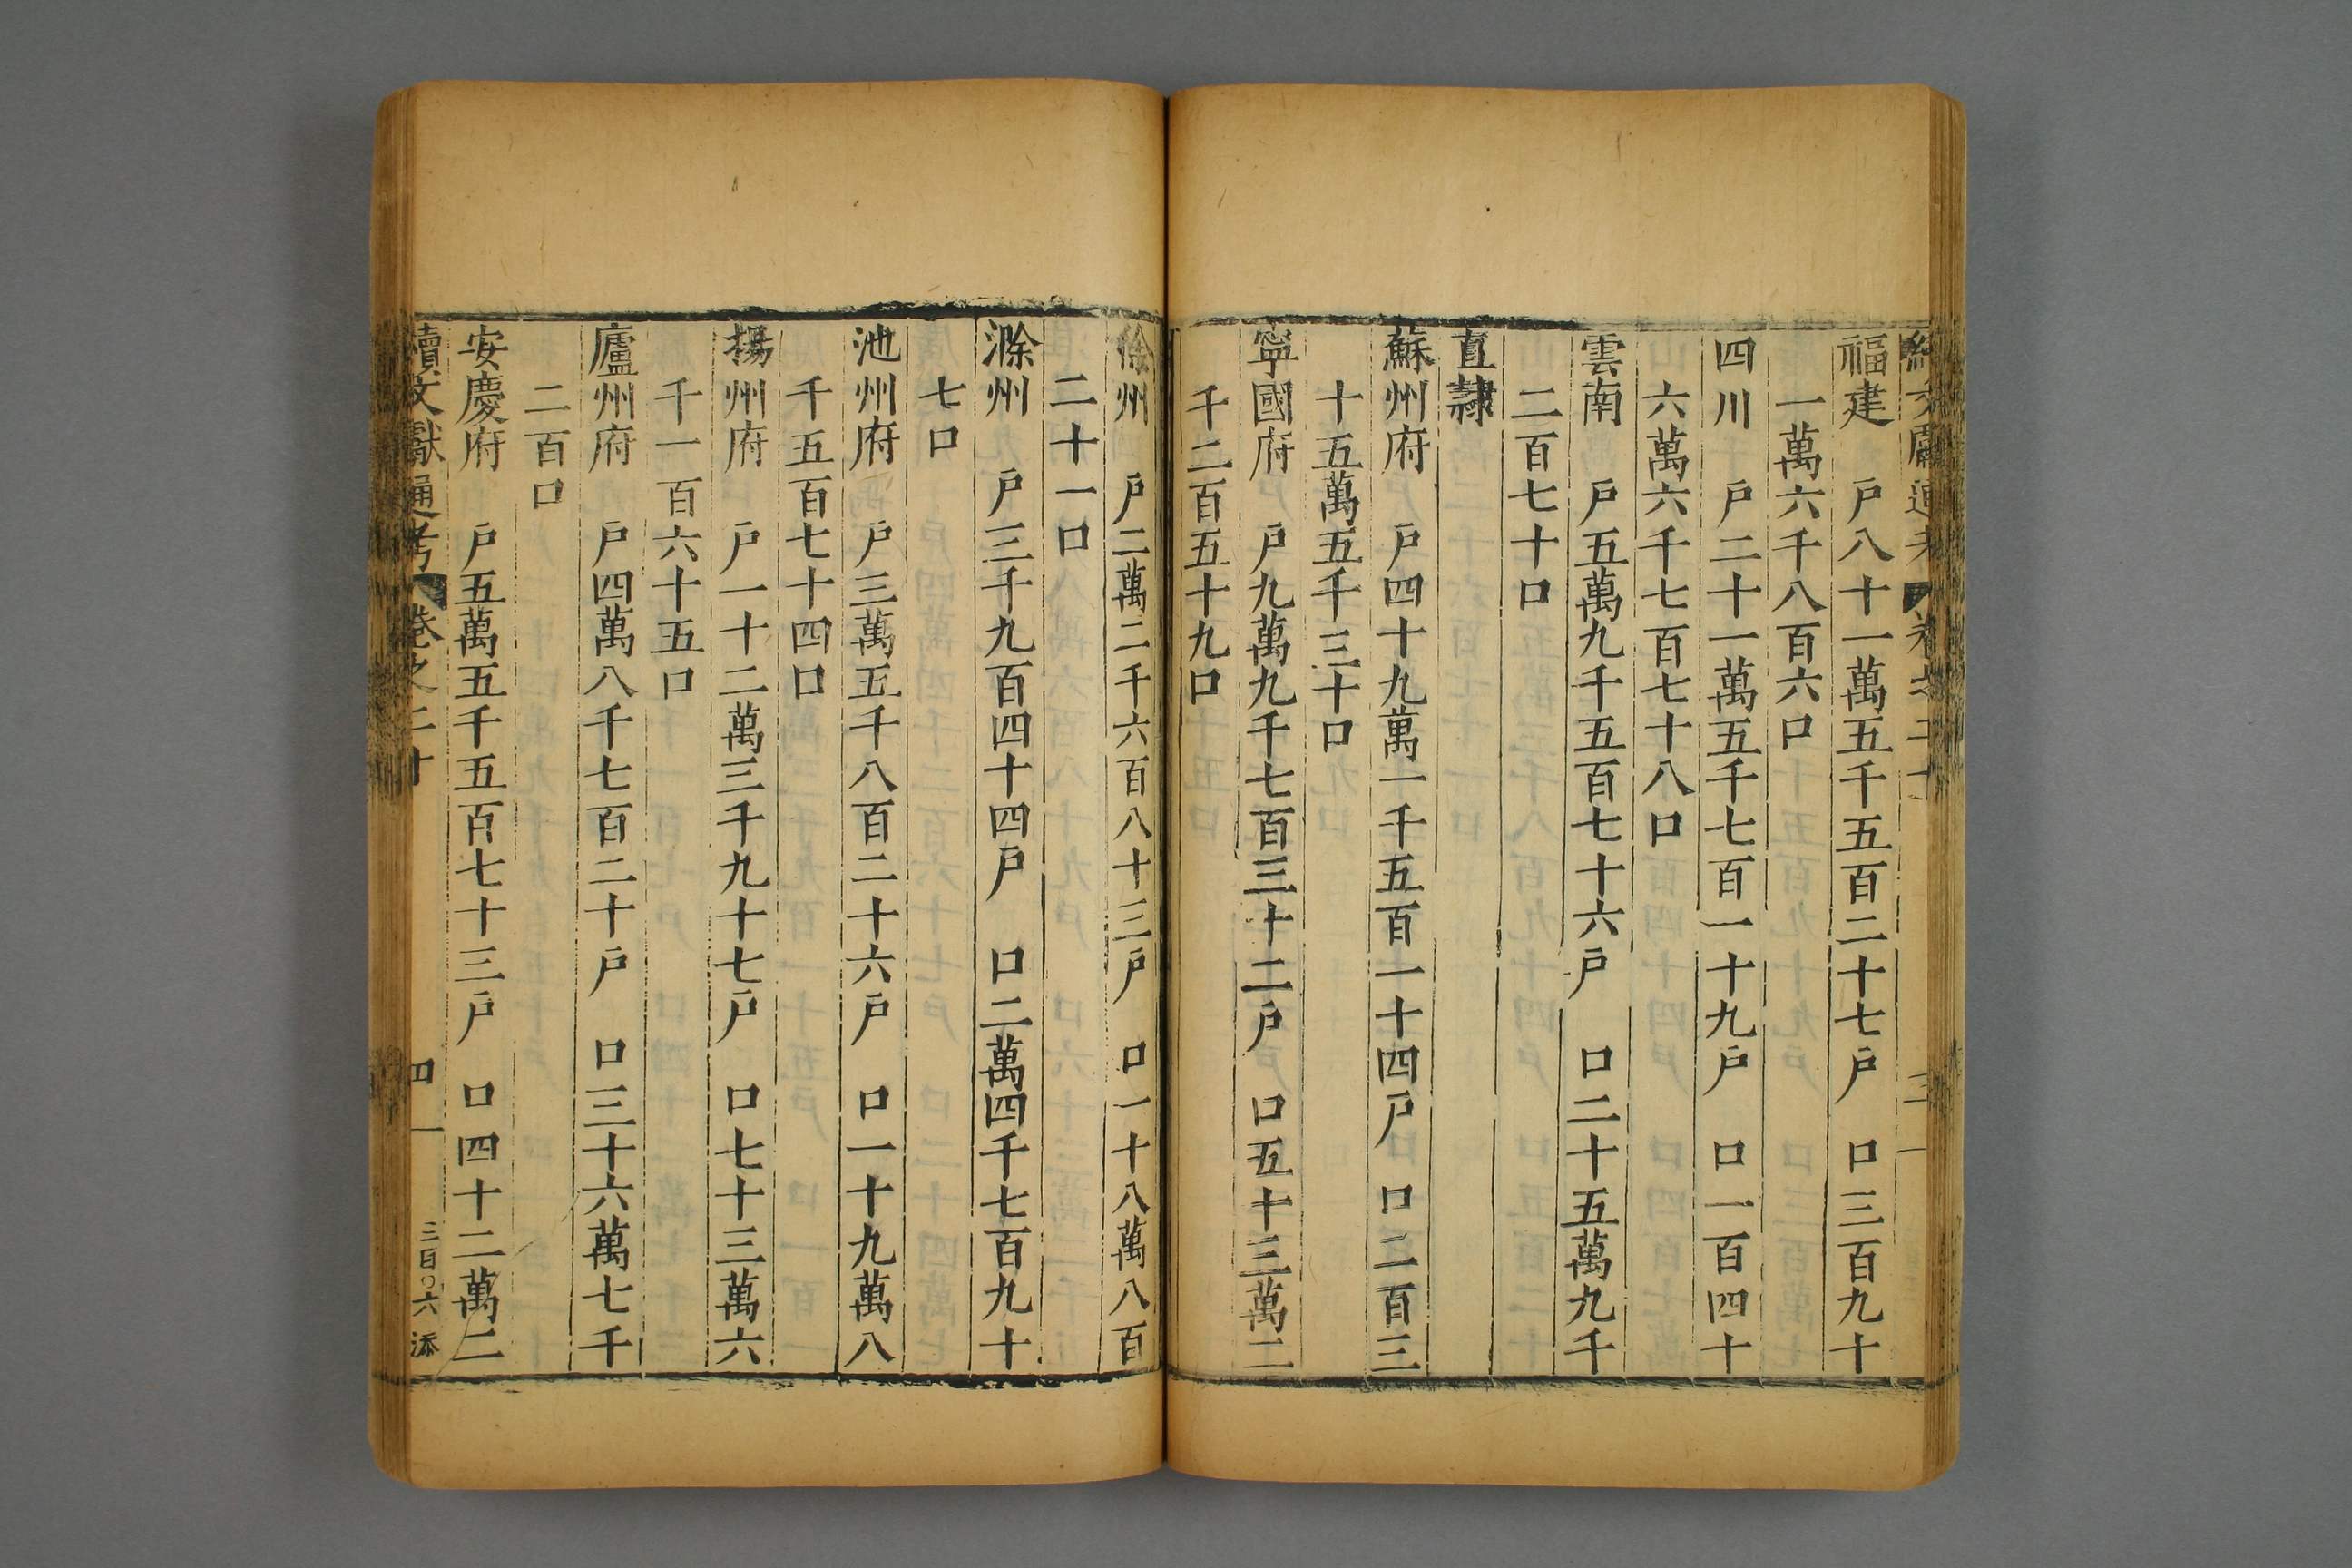 福建 戶八十一萬五千五百二十七戶 口三百九十
一萬六千八百六口
四川 戶二十一萬五千七百一十九戶 口一百四十
六萬六千七百七十八口
雲南 戶五萬九千五百七十六戶 口二十五萬九千
二百七十口
直隷
蘇州府 戶四十九萬一千五百一十四戶 口二百三
十五萬五千三十口
寧國府 戶九萬九千七百三十二戶 口五十三萬二
千二百五十九口
徐州 戶二萬二千六百八十三戶 口一十八萬八百
二十一口
滁州 戶三千九百四十四戶 口二萬四千七百九十
七口
池州府 戶三萬五千八百二十六戶 口一十九萬八
千五百七十四口
揚州府 戶一十二萬三千九十七戶 口七十三萬六
千一百六十五口
廬州府 戶四萬八千七百二十戶 口三十六萬七千
二百口
安慶府 戶五萬五千五百七十三戶 口四十二萬二
續文獻通考 卷之二十 四 三百〇六 添